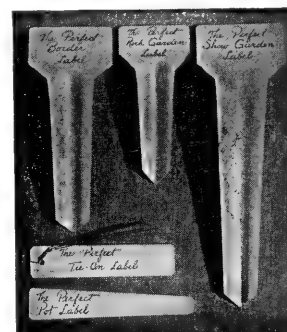 The Perfect
Border
Label
The Perfect
Rock Garden
Label
The Perfect
Show Garden
Label
The "Perfect"
Tie-On Label
The Perfect
Pot Label